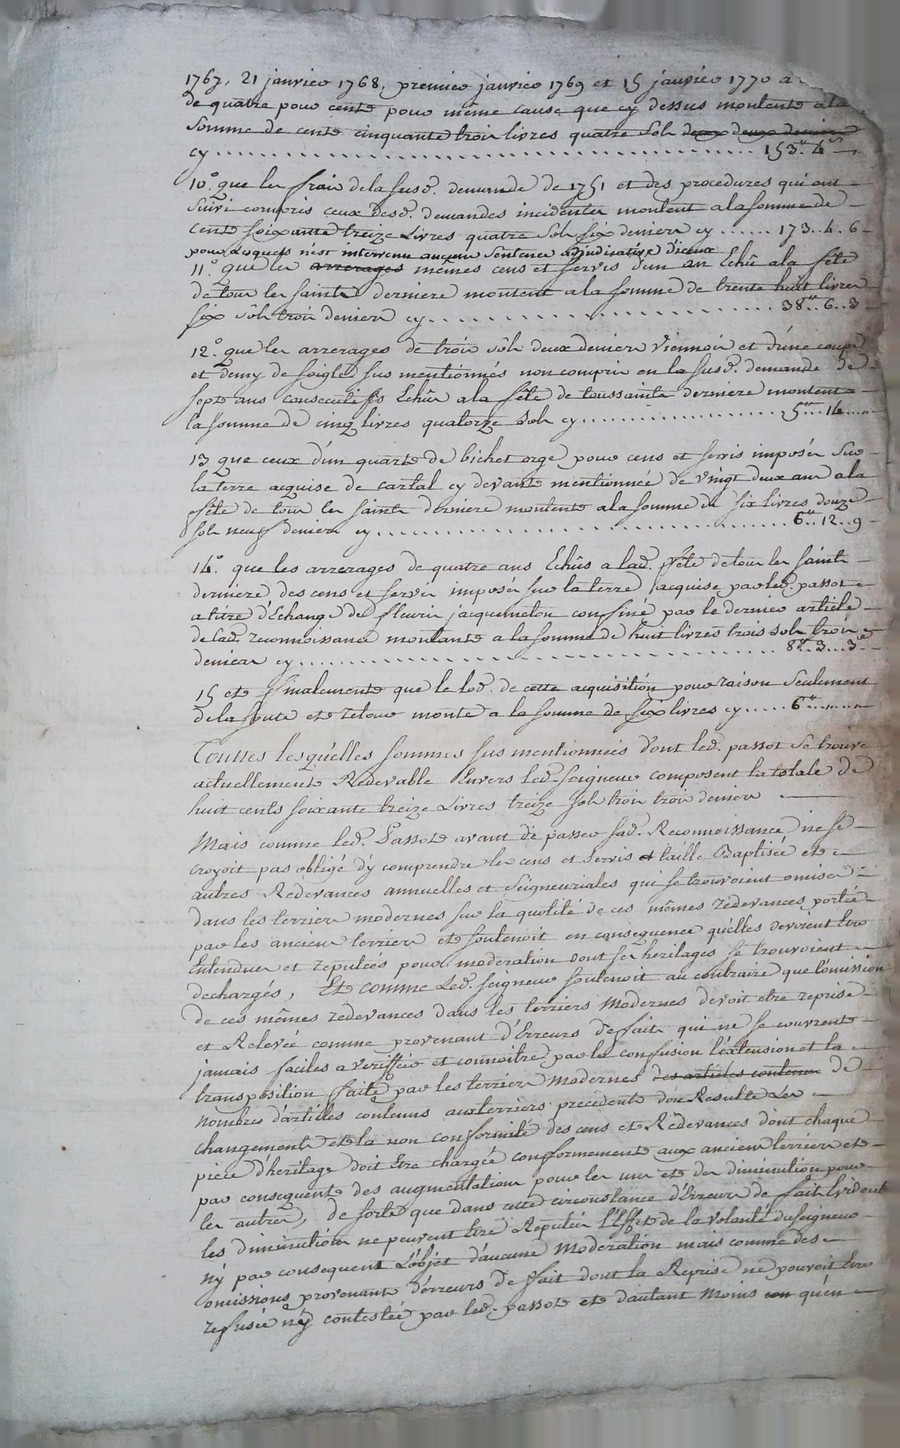 1767, 21 janvier 1768, premier janvier 1769 et 15 janvier 1770 a
de quatre pour cents pour même cause que cy dessus montents a la
somme de cents cinquante trois livres quatre sols deux deux deniers
cy .......... 153ᵗᵗ 4ˢ
10.° que les frais de la susd.ᵉ demande de 1751 et des procedures qui ont
suivi compris ceux desd.ᵉˢ demandes incidentes montent a la somme de
cents soixante treize Livres quatre sols six deniers cy ...... 173..4..6
pour lesquels n'est intervenu aucune sentence adjudicative d'iceux
11.° que les arrerages mêmes cens et servis d'un an Echû a la fête
de tous les saints derniere montent a la somme de trente huit livres
six sols trois deniers cy .......... 38ᵗᵗ..6..3
12.° que les arrerages de trois sols deux deniers viennois et d'une coupe
et demy de seigle sus mentionnés non compris en la susd.ᵉ demande de
septs ans consecutifs Echûs a la fête de toussaints derniere montent a
la somme de cinq livres quatorze sols cy .......... 5ᵗᵗ..14....
13 que ceux d'un quarts de bichet orge pour cens et servis imposés sur
la terre acquise de cartal cy devants mentionnée de vingt deux ans a la
fête de tous les saints derniere montents a la somme de six livres douze
sols neuf deniers cy .......... 6ᵗᵗ..12..9
14.° que les arrerages de quatre ans Echûs a lad.ᵉ fête de tous les saints
derniere des cens et servis imposés sur la terre acquise par led.ᵗ passot
a titre d'Echange de fleurie jacquemeton confiné par le dernier article
de lad.ᵉ reconnoissance montants a la somme de huit livres trois sols trois
deniers cy .......... 8ᵗᵗ..3...3ᵈ
15 ets finalements que le lod.ᵗ de cette acquisition pour raison seulement
de la soute ets retour monte a la somme de six livres cy ..... 6ᵗᵗ......
Toutes lesquelles sommes sus mentionnées d'ont led.ᵗ passot se trouve
actuellements Redevable Envers led.ᵗ seigneur composent la totale de
huit cents soixante treize Livres treize sols trois trois deniers
Mais comme led.ᵗ Passots avant de passer sad.ᵉ Reconnoissance ne se
croyoit pas obligé d'y comprendre les cens et servis et taille Baptisée ets
autres Redevances annuelles et seigneuriales qui se trouvoient omises
dans les terriers modernes sur la quotité de ces mêmes redevances portée
par les anciens terriers ets soutenoit en consequence qu'elles devoient être
Entendues et reputées pour moderation dont ses heritages se trouvoient
dechargés, Ets comme Led.ᵗ seigneur soutenoit au contraire que l'omission
de ces mêmes redevances dans les terriers modernes devoit etre reprise
et Relevée comme provenant d'Erreurs de faits qui ne se couvrents
jamais faciles a veriffier et connoitre par la confusion l'extension et la
transposition faite par les terriers modernes des articles contenus de
nombre d'articles contenus aux terriers precedents d'ou Resulte Les
changements ets la non conformité des cens ets Redevances dont chaque
piece d'heritage doit être chargée conformements aux anciens terriers ets
par consequents des augmentations pour les uns ets des diminutions pour
les autres, de sorte que dans cette circonstance d'Erreurs de faits Evident
les diminutions ne peuvent être Reputées l'Effet de la volonté du seigneur
n'y par consequent L'objet d'aucune moderation mais comme des
omissions provenants d'erreurs de fait dont la Reprise ne pouvoit être
refusée n'y contestée par led.ᵗ passots ets dautant moins con qu'en